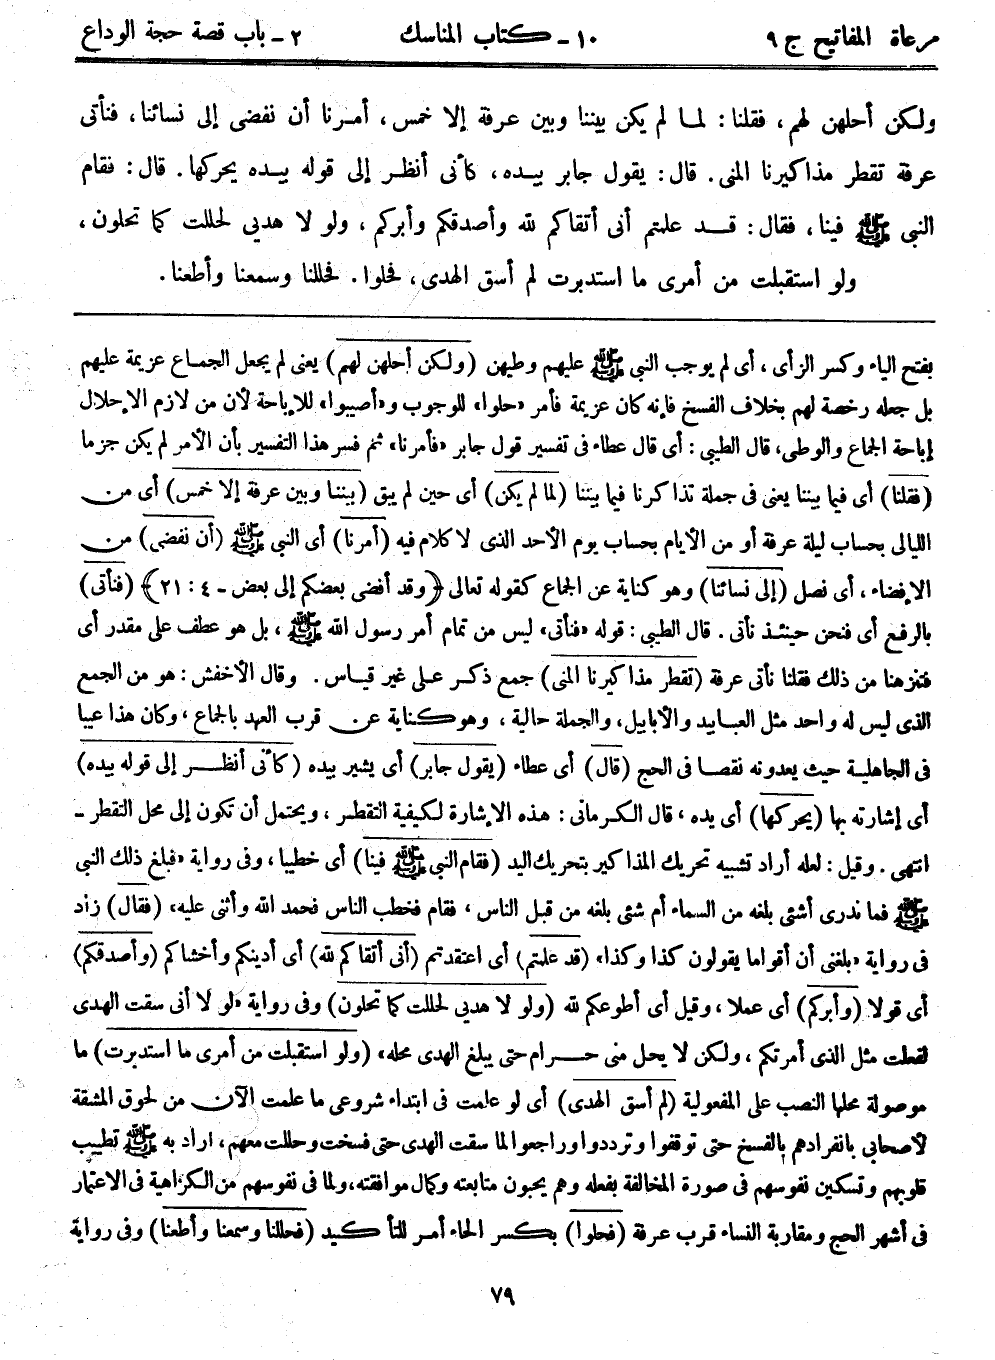 مرعاة المفاتيح ج ٩
١٠ - كتاب المناسك
٢ - باب قصة حجة الوداع
ولكن أحلهن لهم، فقلنا: لما لم يكن بيننا وبين عرفة إلا خمس، أمرنا أن نفضى إلى نسائنا، فنأتى
عرفة تقطر مذاكيرنا المنى. قال: يقول جابر بيده، كأنى أنظر إلى قوله بيده يحركها. قال: فقام
النبى ﷺ فينا، فقال: قد علمتم أنى أتقاكم لله وأصدقكم وأبركم، ولو لا هديى لحللت كما تحلون،
ولو استقبلت من أمرى ما استدبرت لم أسق الهدى، فحلوا. فحللنا وسمعنا وأطعنا.
بفتح الياء وكسر الزأى، أى لم يوجب النبى ﷺ عليهم وطيهن (ولكن أحلهن لهم) يعنى لم يجعل الجماع عزيمة عليهم
بل جعله رخصة لهم بخلاف الفسخ فإنه كان عزيمة فأمر «حلوا» للوجوب و«أصيبوا» للإباحة لأن من لازم الإحلال
إباحة الجماع والوطى، قال الطيبى: أى قال عطاء فى تفسير قول جابر «فأمرنا» ثم فسر هذا التفسير بأن الأمر لم يكن جزما
(فقلنا) أى فيما بيننا يعنى فى جملة تذاكرنا فيما بيننا (لما لم يكن) أى حين لم يبق (بيننا وبين عرفة إلا خمس) أى من
الليالى بحساب ليلة عرفة أو من الأيام بحساب يوم الأحد الذى لا كلام فيه (أمرنا) أى النبى ﷺ (أن نفضى) من
الإفضاء، أى نصل (إلى نسائنا) وهو كناية عن الجماع كقوله تعالى ﴿وقد أفضى بعضكم إلى بعض - ٤ : ٢١﴾ (فنأتى)
بالرفع أى فنحن حينئذ نأتى. قال الطيبى: قوله «فنأتى» ليس من تمام أمر رسول الله ﷺ، بل هو عطف على مقدر أى
فتنزهنا من ذلك فقلنا نأتى عرفة (تقطر مذاكيرنا المنى) جمع ذكر على غير قياس. وقال الأخفش: هو من الجمع
الذى ليس له واحد مثل العبابيد والأبابيل، والجملة حالية، وهو كناية عن قرب العهد بالجماع، وكان هذا عيبا
فى الجاهلية حيث يعدونه نقصا فى الحج (قال) أى عطاء (يقول جابر) أى يشير بيده (كأنى أنظر إلى قوله بيده)
أى إشارته بها (يحركها) أى يده، قال الكرمانى: هذه الإشارة لكيفية التقطر، ويحتمل أن تكون إلى محل التقطر -
انتهى. وقيل: لعله أراد تشبيه تحريك المذاكير بتحريك اليد (فقام النبى ﷺ فينا) أى خطيبا، وفى رواية «فبلغ ذلك النبى
ﷺ فما ندرى أشئى بلغه من السماء أم شئى بلغه من قبل الناس، فقام فخطب الناس فحمد الله وأثنى عليه، (فقال) زاد
فى رواية «بلغنى أن أقواما يقولون كذا وكذا» (قد علمتم) أى اعتقدتم (أنى أتقاكم لله) أى أدينكم وأخشاكم (وأصدقكم)
أى قولا (وأبركم) أى عملا، وقيل أى أطوعكم لله (ولو لا هديى لحللت كما تحلون) وفى رواية «لو لا أنى سقت الهدى
لفعلت مثل الذى أمرتكم، ولكن لا يحل منى حرام حتى يبلغ الهدى محله» (ولو استقبلت من أمرى ما استدبرت) ما
موصولة محلها النصب على المفعولية (لم أسق الهدى) أى لو علمت فى ابتداء شروعى ما علمت الآن من لحوق المشقة
لأصحابى بانفرادهم بالفسخ حتى توقفوا وترددوا وراجعوا لما سقت الهدى حتى فسخت وحللت معهم، اراد به ﷺ تطييب
قلوبهم وتسكين نفوسهم فى صورة المخالفة بفعله وهم يحبون متابعته وكمال موافقته، ولما فى نفوسهم من الكراهية فى الاعتمار
فى أشهر الحج ومقاربة النساء قرب عرفة (فحلوا) بكسر الحاء أمر للتأكيد (فحللنا وسمعنا وأطعنا) وفى رواية
٧٩